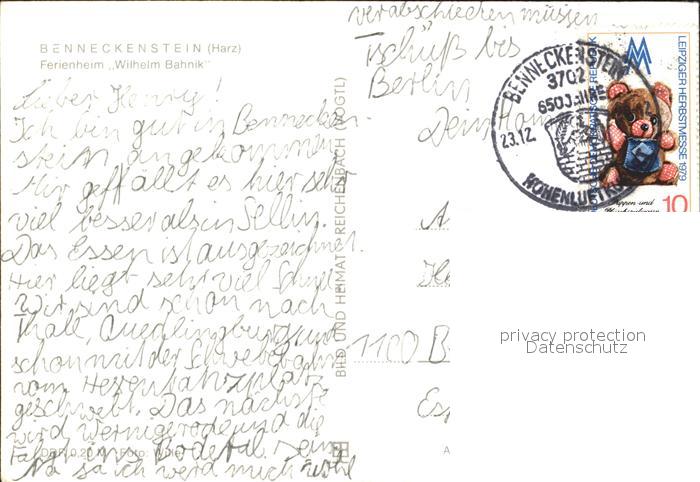 BENNECKENSTEIN (Harz)
Ferienheim „Wilhelm Bahnik"
Lieber Henry!
Ich bin gut in Bennecken-
stein angekommen
Mir geffällt es hier sehr
viel besser als in Sellin.
Das Essen ist ausgezeichnet.
Hier liegt sehr viel Schnee
Wir sind schon nach
Thale, Quedlingburg und
schon mit der Schwebebahn
vom Hexentanzplatz
geschwebt. Das nächste
wird Wernigerode und die
Fahrt ins Bodetal sein
Na so ich werd mich wohl
verabschieden müssen
Tschüß bis
Berlin
Dein
BILD UND HEIMAT REICHENBACH (VOGTL)
BENNECKENSTEIN
3702
650 JAHRE
23.12.
HÖHENLUFTKU
LEIPZIGER HERBSTMESSE 1979
Puppen und
10
1100 B
privacy protection
Datenschutz